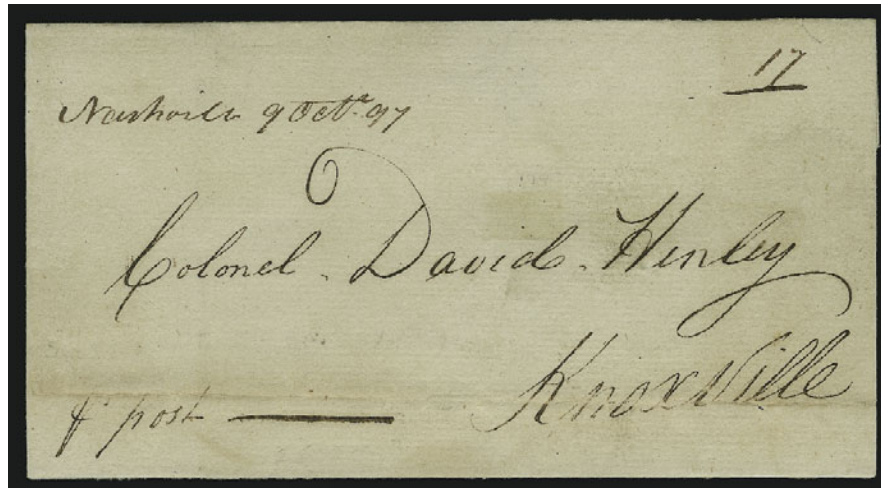 17
Nashville 9 Octr. 97
Colonel David Henley
Knoxville
⅌ post